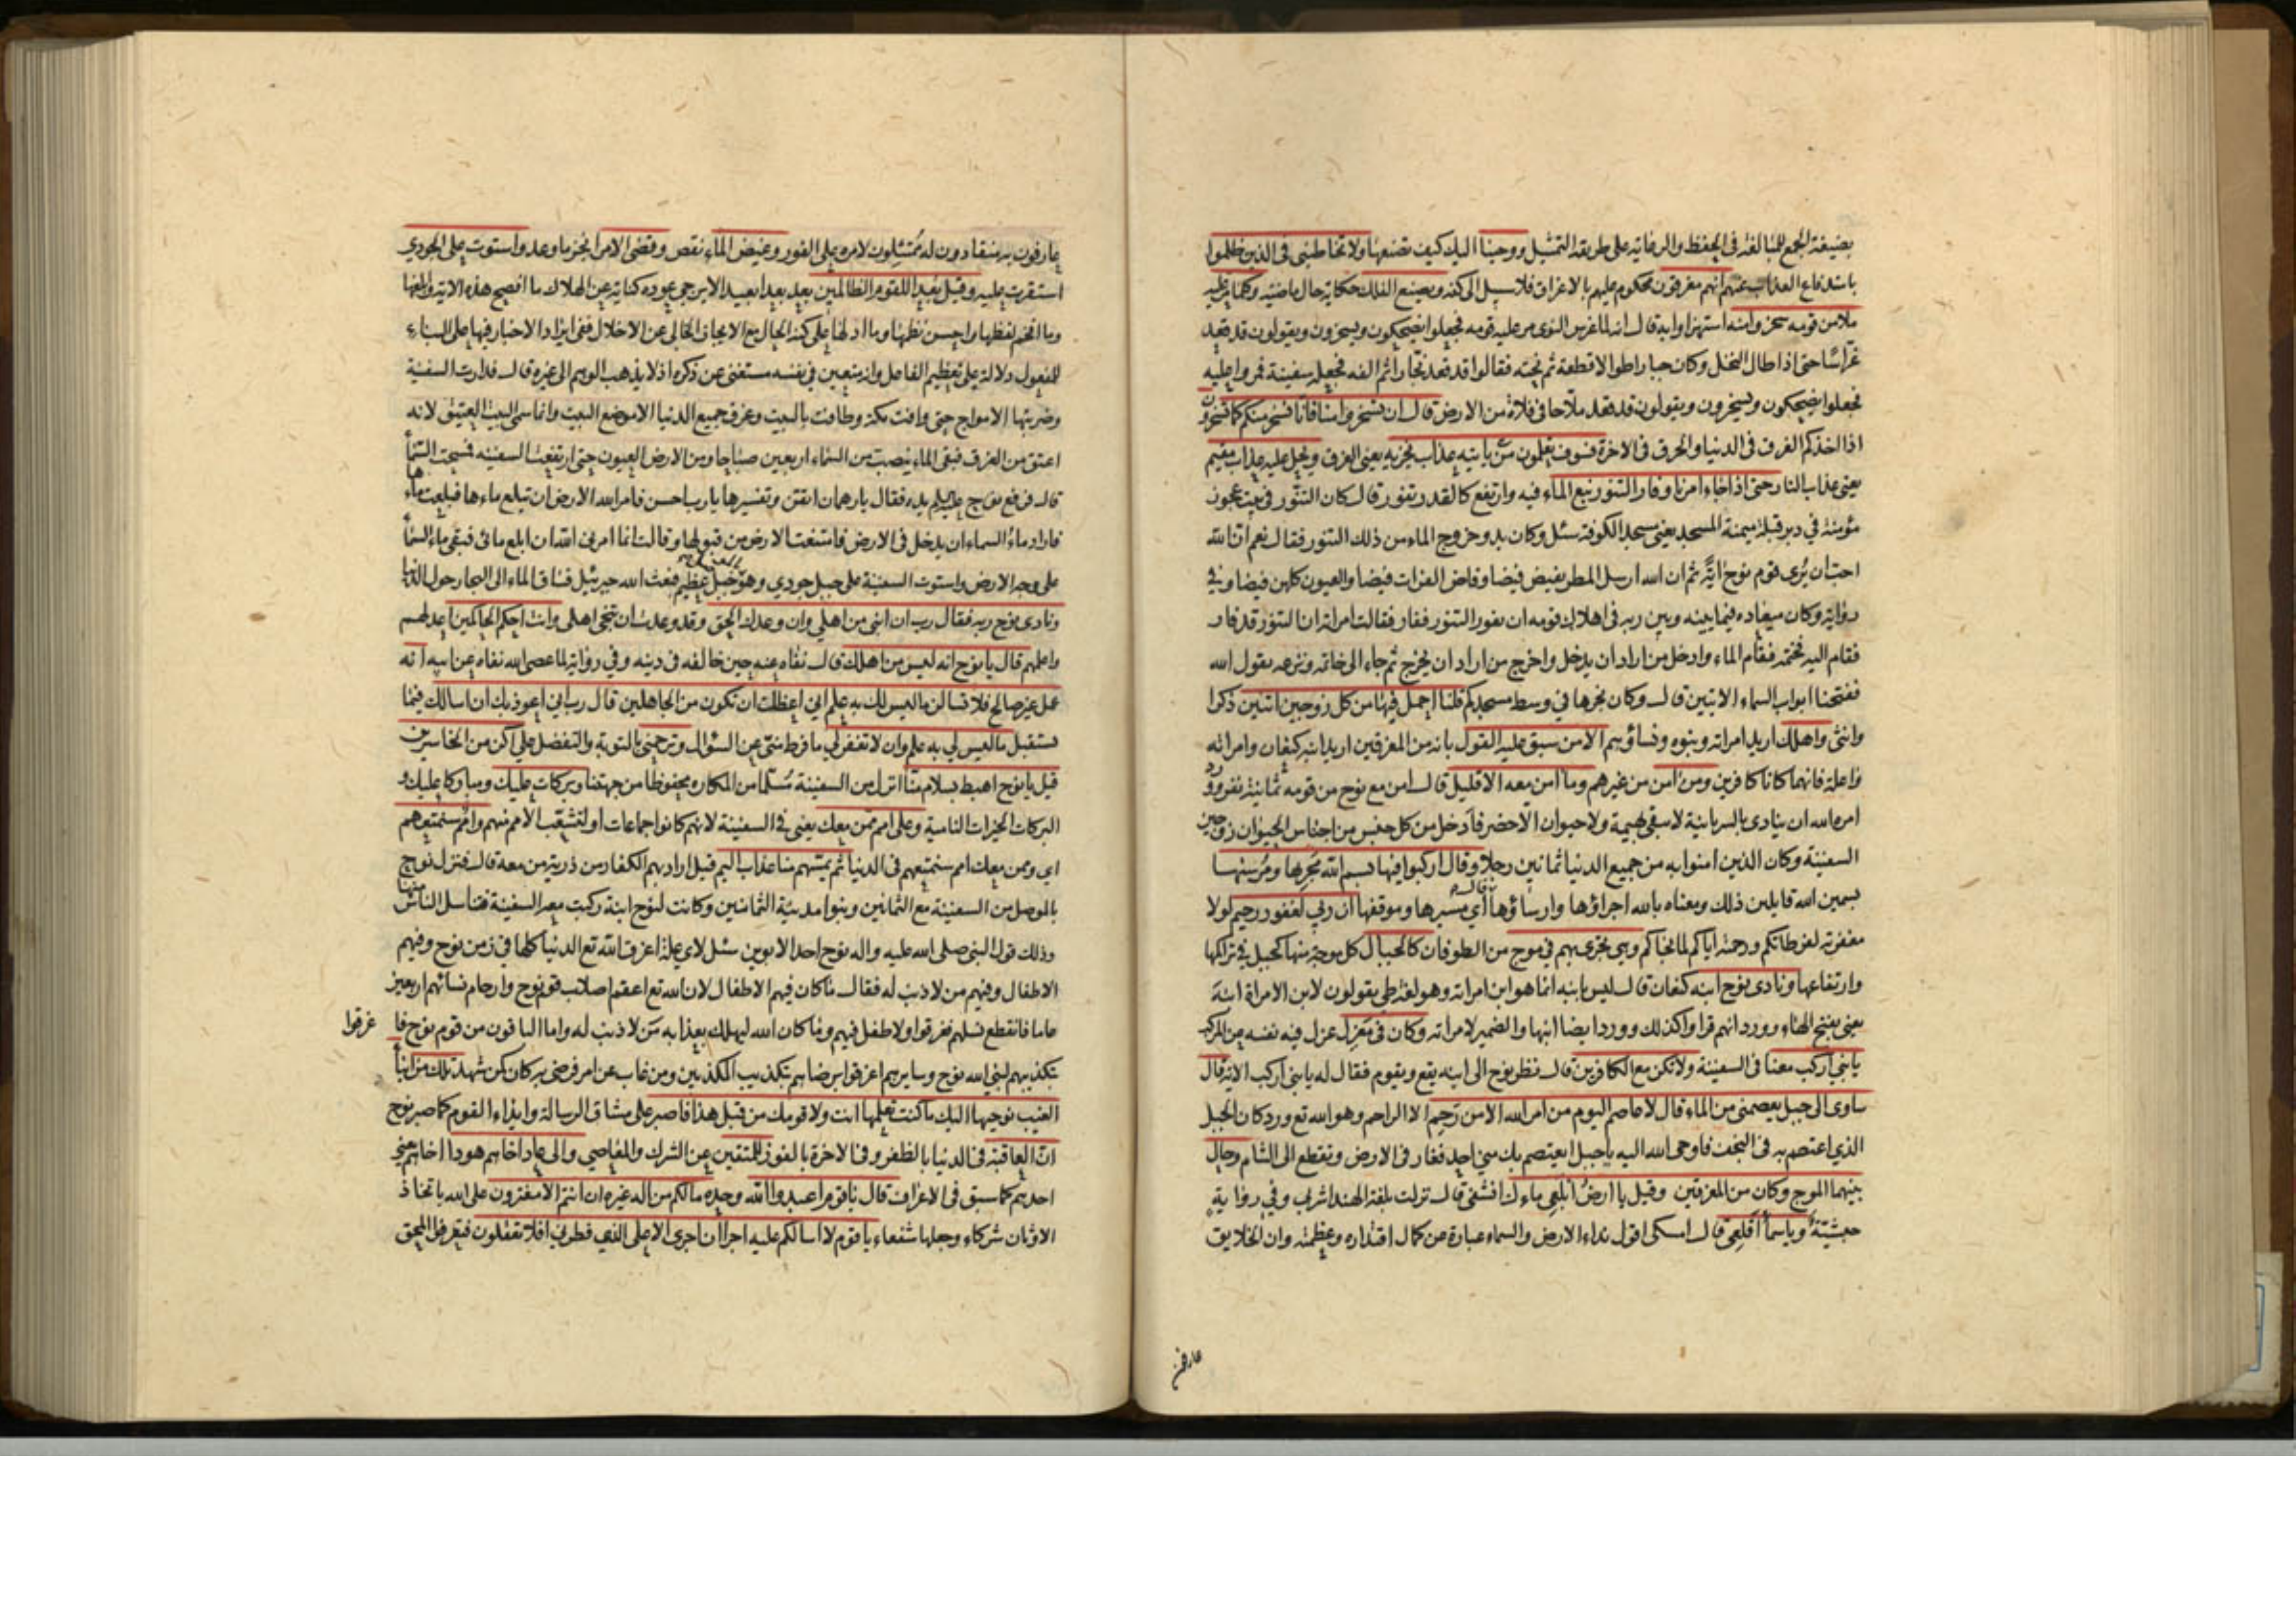 بصيغة الجمع للمبالغة في الحفظ والرعاية على طريقة التمثيل ووحينا اليك كيف تصنعها ولا تخاطبني في الذين ظلموا
باستدفاع العذاب عنهم انهم مغرقون محكوم عليهم بالاغراق فلا سبيل الى كفه ويصنع الفلك حكاية حال ماضية وكلما مر عليه
ملأ من قومه سخروا منه استهزاوا به قال انه لما غرس النوى مر عليه قومه فجعلوا يضحكون ويسخرون ويقولون قد قعد
غراسا حتى اذا طال النخل وكان جبارا طوالا قطعه ثم نحته فقالوا قد قعد نجارا ثم الفه فجعله سفينة فمروا عليه
فجعلوا يضحكون ويسخرون ويقولون قد قعد ملاحا في فلاة من الارض قال ان تسخروا منا فانا نسخر منكم كما تسخرون
اذا اخذكم الغرق في الدنيا والحرق في الاخرة فسوف يعلمون من يأتيه عذاب يخزيه يعني الغرق ويحل عليه عذاب مقيم
يعني عذاب النار حتى اذا جاء امرنا وفار التنور نبع الماء فيه وارتفع كالقدر تفور قال كان التنور في بيت عجوز
مؤمنة في دبر قبلة ميمنة المسجد يعني مسجد الكوفة سئل وكان بدو خروج الماء من ذلك التنور فقال نعم ان الله
احب ان يرى قوم نوح اية ثم ان الله ارسل المطر يفيض فيضا وفاض الفرات فيضا والعيون كلهن فيضا وفي
رواية وكان ميعاده فيما بينه وبين ربه في اهلاك قومه ان يفور التنور ففار فقالت امراته ان التنور قد فار
فقام اليه فختمه فقام الماء وادخل من اراد ان يدخل واخرج من اراد ان يخرج ثم جاء الى خاتمه ونزعه يقول الله
ففتحنا ابواب السماء الايتين قال وكان نجرها في وسط مسجدكم قلنا احمل فيها من كل زوجين اثنين ذكرا
وانثى واهلك اريد امراته وبنوه ونساؤهم الا من سبق عليه القول بانه من المغرقين اريد ابنه كنعان وامراته
واعلة فانهما كانا كافرين ومن امن من غيرهم وما امن معه الا قليل قال امن مع نوح من قومه ثمانية نفر وورد
امره الله ان ينادي بالسريانية لا يبقى بهيمة ولا حيوان الا حضر فادخل من كل جنس من اجناس الحيوان زوجين
السفينة وكان الذين امنوا به من جميع الدنيا ثمانين رجلا وقال اركبوا فيها بسم الله مجريها ومرسيها
بسمين الله قايلين ذلك ومعناه بالله اجراؤها وارساؤها قال اي مسيرها وموقفها ان ربي لغفور رحيم لولا
مغفرته لفرطاتكم ورحمته اياكم لما نجاكم وهي تجري بهم في موج من الطوفان كالجبال كل موجة منها كجبل في تراكمها
وارتفاعها ونادى نوح ابنه كنعان قال ليس بابنه انما هو ابن امراته وهو لغة طي يقولون لابن الامراة ابنه
يعني بفتح الهاء وورد انهم قراوا كذلك وورد ايضا ابنها والضمير لامراته وكان في معزل عزل فيه نفسه عن المركب
يا بني اركب معنا في السفينة ولا تكن مع الكافرين قال نظر نوح الى ابنه يقع ويقوم فقال له يا بني اركب الاية قال
ساوى الى جبل يعصمني من الماء قال لا عاصم اليوم من امر الله الا من رحم الا الراحم وهو الله تع وورد كان الجبل
الذي اعتصم به في النجف فاوحى الله اليه يا جبل ايعتصم بك مني احد فغار في الارض وتقطع الى الشام وحال
بينهما الموج وكان من المغرقين وقيل يا ارض ابلعي ماءك انشفي قال نزلت بلغة الهند اشربي وفي رواية
حبشية ويا سماء اقلعي قال امسكي اقول نداء الارض والسماء عبارة عن كمال اقتداره وعظمته وان الخلايق
عارفون
عارفون به منقادون له ممتثلون لامره على الفور وغيض الماء نقص وقضي الامر انجز ما وعد واستوت على الجودي
استقرت عليه وقيل بعدا للقوم الظالمين بعد بعدا بعيدا لا يرجى عوده كناية عن الهلاك ما افصح هذه الاية وابلغها
وما افخم لفظها واحسن نظمها وما ادلها على كنه الحال مع الايجاز الخالي عن الاخلال ففي ايراد الاخبار فيها على البناء
للمفعول دلالة على تعظيم الفاعل وانه متعين في نفسه مستغنى عن ذكره اذ لا يذهب الوهم الى غيره قال فدارت السفينة
وضربتها الامواج حتى وافت مكة وطافت بالبيت وغرق جميع الدنيا الا موضع البيت وانما سمي البيت العتيق لانه
اعتق من الغرق فبقي الماء ينصب من السماء اربعين صباحا ومن الارض العيون حتى ارتفعت السفينة فسحت السماء
قال فرفع نوح عليه السلم يده فقال يا رهمان اتقن وتفسيرها يا رب احسن فامر الله الارض ان تبلع ماءها فبلعت ماءها
فاراد ماء السماء ان يدخل في الارض فامتنعت الارض من قبولها وقالت انما امرني الله ان ابلع مائي فبقي ماء السماء
على وجه الارض واستوت السفينة على جبل جودي وهو بالموصل جبل عظيم فبعث الله جبرئيل فساق الماء الى البحار حول الدنيا
ونادى نوح ربه فقال رب ان ابني من اهلي وان وعدك الحق وقد وعدت ان تنجي اهلي وانت احكم الحاكمين اعدلهم
واعلمهم قال يا نوح انه ليس من اهلك قال نفاه عنه حين خالفه في دينه وفي رواية لما عصى الله نفاه عن ابيه انه
عمل غير صالح فلا تسألن ما ليس لك به علم اني اعظك ان تكون من الجاهلين قال رب اني اعوذ بك ان اسالك فيما
يستقبل ما ليس لي به علم وان لا تغفر لي ما فرط مني من السؤال وترحمني بالتوبة والتفضل علي اكن من الخاسرين
قيل يا نوح اهبط بسلام منا انزل من السفينة مسلما من المكاره محفوظا من جهتنا وبركات عليك ومباركا عليك و
البركات الخيرات النامية وعلى امم ممن معك يعني في السفينة لانهم كانوا جماعات او لتشعب الامم منهم وامم سنمتعهم
اي وممن معك امم سنمتعهم في الدنيا ثم يمسهم منا عذاب اليم قيل اراد بهم الكفار من ذرية من معه قال فنزل نوح
بالموصل من السفينة مع الثمانين وبنوا مدينة الثمانين وكانت لنوح ابنة ركبت معه السفينة فتناسل الناس منها
وذلك قول النبي صلى الله عليه واله نوح احد الابوين سئل لاي علة اغرق الله تع الدنيا كلها في زمن نوح وفيهم
الاطفال وفيهم من لا ذنب له فقال ما كان فيهم الاطفال لان الله تع اعقم اصلاب قوم نوح وارحام نسائهم اربعين
عاما فانقطع نسلهم فغرقوا ولا طفل فيهم وما كان الله ليهلك بعذابه من لا ذنب له واما الباقون من قوم نوح فا غرقوا
بتكذيبهم لنبي الله نوح وسايرهم اغرقوا برضاهم بتكذيب المكذبين ومن غاب عن امر فرضي به كان كمن شهد تلك من انباء
الغيب نوحيها اليك ما كنت تعلمها انت ولا قومك من قبل هذا فاصبر على مشاق الرسالة وايذاء القوم كما صبر نوح
ان العاقبة في الدنيا بالظفر وفي الاخرة بالفوز للمتقين عن الشرك والمعاصي والى عاد اخاهم هودا اخاهم يعني
احدهم كما سبق في الاعراف قال يا قوم اعبدوا الله وحده ما لكم من اله غيره ان انتم الا مفترون على الله باتخاذ
الاوثان شركاء وجعلها شفعاء يا قوم لا اسالكم عليه اجرا ان اجري الا على الذي فطرني افلا تعقلون فتعرفوا المحق